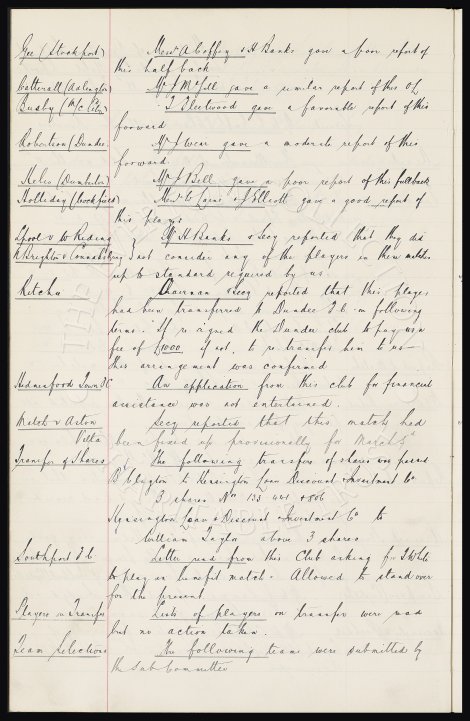 Gee (Stockport) Messrs A Coffey & H Banks gave a poor report of
this half back
Catterall (Adlington) Mr J McGill gave a similar report of this O.L
Busby (M/c City) T Fleetwood gave a favorable report of this
forward
Robertson (Dundee Mr J Wear gave a moderate report of this
forward.
Kelso (Dumbarton) Mr J Bell gave a poor report of this full back
Holliday (Stockport) Messrs C Cains & J Ellicott gave a good report of
this player
Lpool v W Reding Mr H Banks & Secy reported that they did
N Brighton v Connahs Quay not consider any of the players in these matches
up to standard required by us.
Ritchie Chairman & Secy reported that this player
had been transferred to Dundee F.C. on following
terms: If re signed the Dundee club to pay us a
fee of £1000 if not, to re transfer him to us
This arrangement was confirmed
Hednesford Town F.C An application from this club for financial
assistance was not entertained
Match v Aston Villa Secy reported that this match had
been fixed up provisionally for March 5th
Transfer of Shares The following transfers of shares was passed
to Kensington Loan Discount & Investment Co
3 shares Nos 133 441 & 806
Kensington Loan & Discount & Investment Co to
William Taylor above 3 shares
Southport F.C. Letter read from this Club asking for
to play in benefit match. Allowed to stand over
for the present
Players on Transfer Lists of players on transfer were read
but no action taken.
Team Selections The following teams were submitted by
the Sub Committee